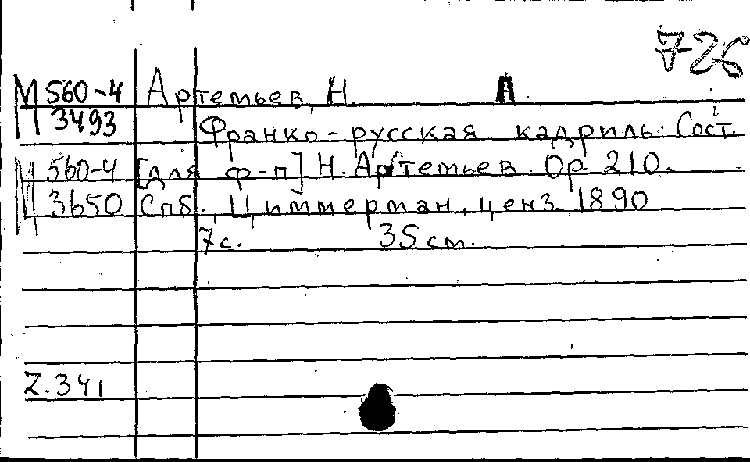 726
М 560-4 Артемьев, Н. А.
М 3493 Франко-русская кадриль. Сост.
М 560-4 [для ф-п] Н. Артемьев. Ор 210.
М 3650 Спб., Циммерман, ценз. 1890
7с. 35 см.
Z.341